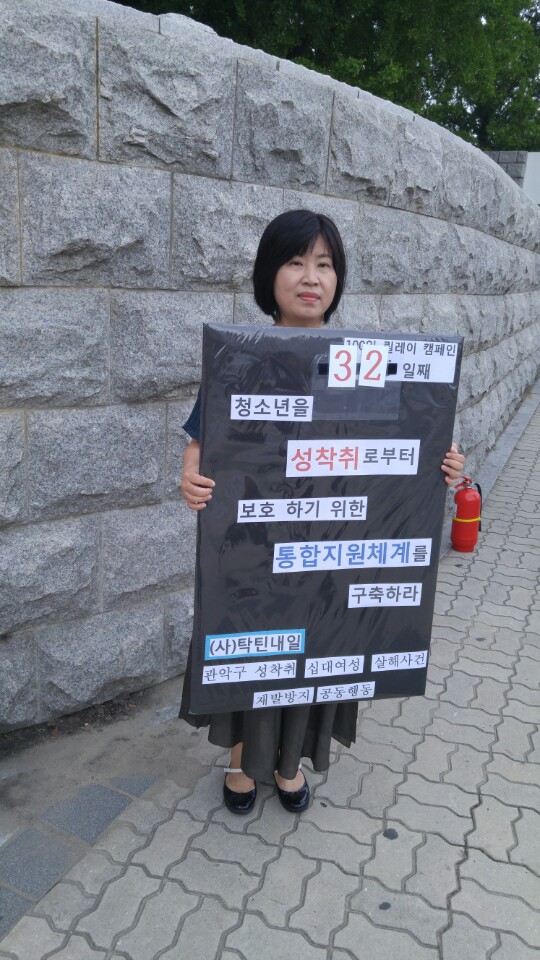 릴레이 캠페인
32 일째
청소년을
성착취로부터
보호 하기 위한
통합지원체계를
구축하라
(사)탁틴내일
관악구 성착취 십대여성 살해사건
재발방지 공동행동